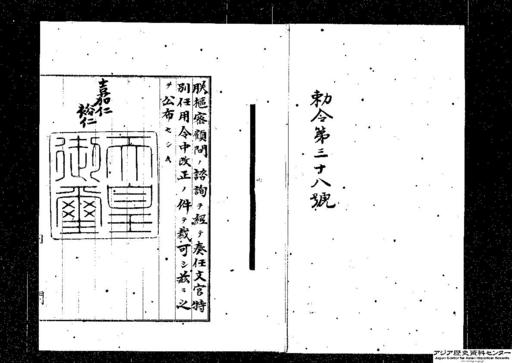 勅令第三十八號
朕樞密顧問ノ諮詢ヲ經テ奏任文官特
別任用令中改正ノ件ヲ裁可シ茲ニ之
ヲ公布セシム
嘉仁
裕仁
天皇
御璽
アジア歴史資料センター
Japan Center for Asian Historical Records